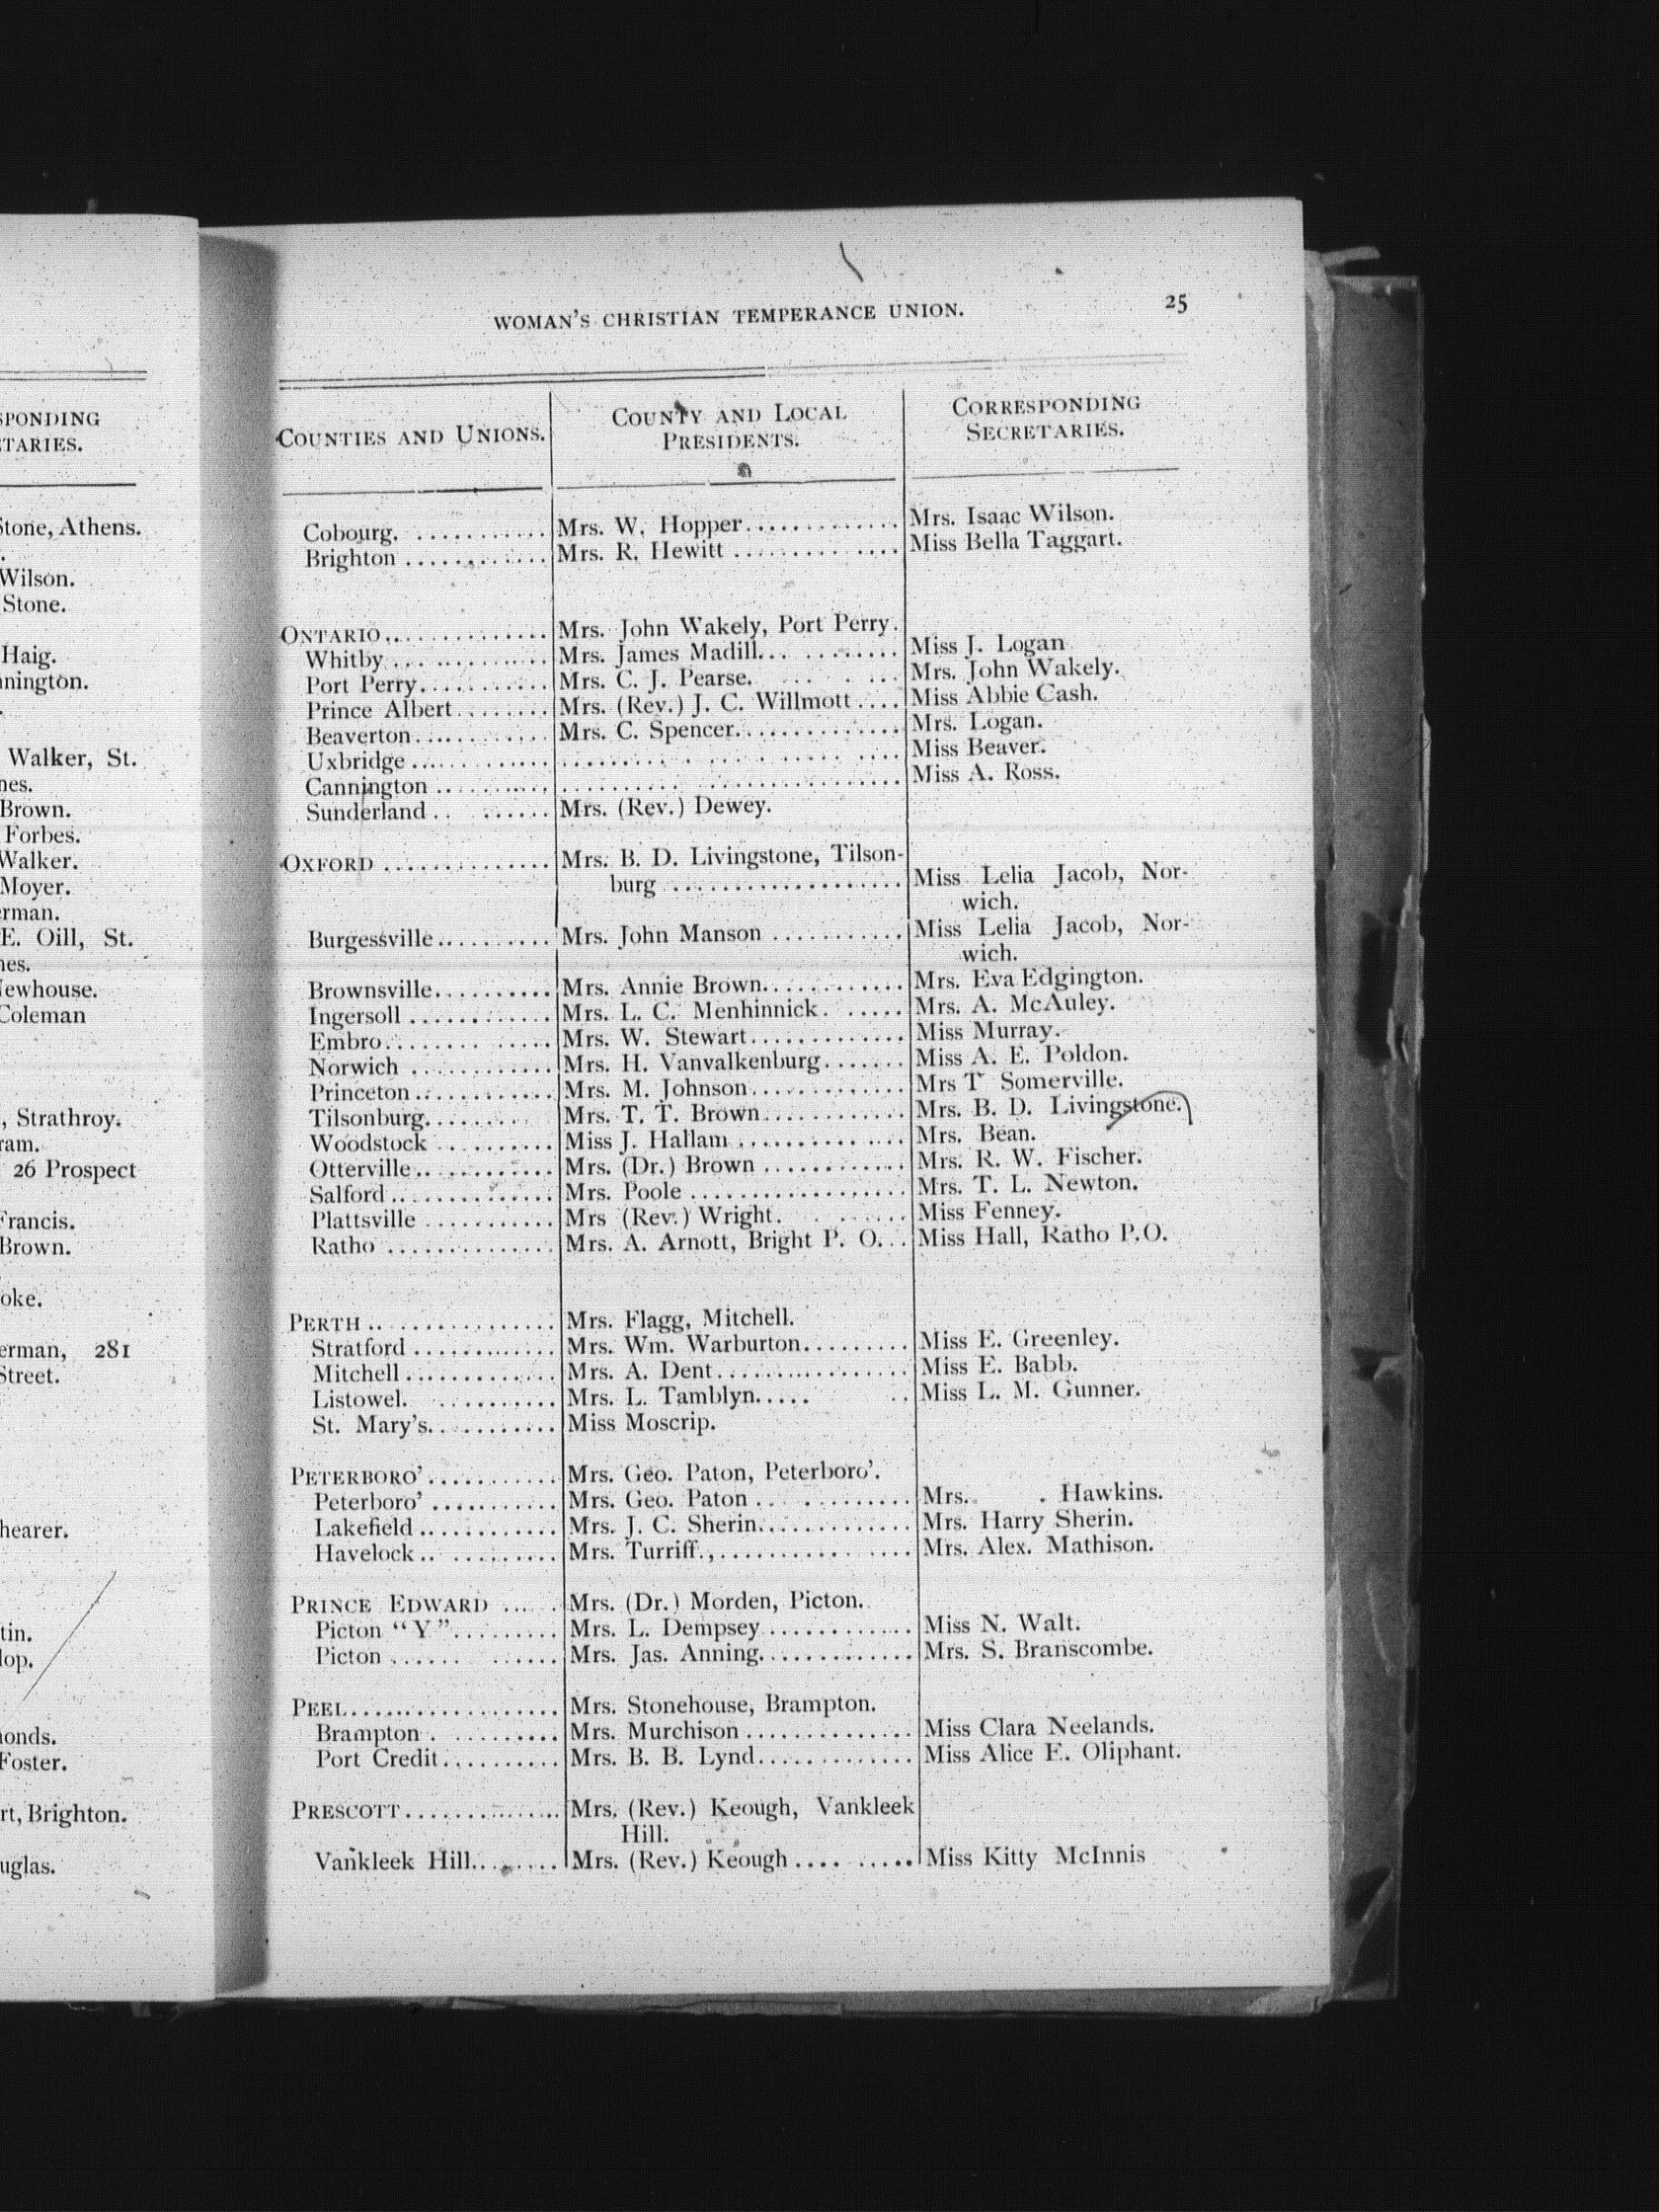 SPONDING
ETARIES.
Stone, Athens.
Wilson.
Stone.
Haig.
nnington.
Walker, St.
nes.
Brown.
Forbes.
Walker.
Moyer.
erman.
E. Oill, St.
nes.
Newhouse.
Coleman
, Strathroy.
ram.
26 Prospect
Francis.
Brown.
oke.
erman, 281
Street.
hearer.
tin.
lop.
monds.
Foster.
rt, Brighton.
uglas.
WOMAN'S CHRISTIAN TEMPERANCE UNION. 25
COUNTIES AND UNIONS. COUNTY AND LOCAL PRESIDENTS. CORRESPONDING SECRETARIES.
Cobourg. ........... Mrs. W. Hopper............. Mrs. Isaac Wilson.
Brighton ............ Mrs. R. Hewitt ............. Miss Bella Taggart.
ONTARIO.............. Mrs. John Wakely, Port Perry.
Whitby ............. Mrs. James Madill........... Miss J. Logan
Port Perry........... Mrs. C. J. Pearse. ... . ... Mrs. John Wakely.
Prince Albert........ Mrs. (Rev.) J. C. Willmott .... Miss Abbie Cash.
Beaverton........... Mrs. C. Spencer.............. Mrs. Logan.
Uxbridge ............ .................... Miss Beaver.
Cannington .......... .................... Miss A. Ross.
Sunderland .. ...... Mrs. (Rev.) Dewey.
OXFORD .............. Mrs. B. D. Livingstone, Tilson-
burg ................... Miss Lelia Jacob, Nor-
wich.
Burgessville.......... Mrs. John Manson ........... Miss Lelia Jacob, Nor-
wich.
Brownsville.......... Mrs. Annie Brown............ Mrs. Eva Edgington.
Ingersoll ............ Mrs. L. C. Menhinnick. ..... Mrs. A. McAuley.
Embro........ ..... Mrs. W. Stewart............. Miss Murray.
Norwich ............ Mrs. H. Vanvalkenburg....... Miss A. E. Poldon.
Princeton............ Mrs. M. Johnson............. Mrs T Somerville.
Tilsonburg......... Mrs. T. T. Brown............ Mrs. B. D. Livingstone.
Woodstock .......... Miss J. Hallam .............. Mrs. Bean.
Otterville............ Mrs. (Dr.) Brown ............ Mrs. R. W. Fischer.
Salford.............. Mrs. Poole .................. Mrs. T. L. Newton.
Plattsville ........... Mrs (Rev.) Wright. ...... Miss Fenney.
Ratho .............. Mrs. A. Arnott, Bright P. O... Miss Hall, Ratho P.O.
PERTH .. .............. Mrs. Flagg, Mitchell.
Stratford ............ Mrs. Wm. Warburton......... Miss E. Greenley.
Mitchell ............. Mrs. A. Dent................ Miss E. Babb.
Listowel. .......... Mrs. L. Tamblyn..... .. Miss L. M. Gunner.
St. Mary's........... Miss Moscrip.
PETERBORO'........... Mrs. Geo. Paton, Peterboro'.
Peterboro' ........... Mrs. Geo. Paton ... ......... Mrs. . Hawkins.
Lakefield ............ Mrs. J. C. Sherin............. Mrs. Harry Sherin.
Havelock .. ......... Mrs. Turriff.,........... .... Mrs. Alex. Mathison.
PRINCE EDWARD ... . Mrs. (Dr.) Morden, Picton.
Picton "Y"......... Mrs. L. Dempsey ............ Miss N. Walt.
Picton ...... ...... Mrs. Jas. Anning............. Mrs. S. Branscombe.
PEEL.................. Mrs. Stonehouse, Brampton.
Brampton . ......... Mrs. Murchison .............. Miss Clara Neelands.
Port Credit.......... Mrs. B. B. Lynd............. Miss Alice E. Oliphant.
PRESCOTT............. Mrs. (Rev.) Keough, Vankleek
Hill.
Vankleek Hill........ Mrs. (Rev.) Keough .... ..... Miss Kitty McInnis